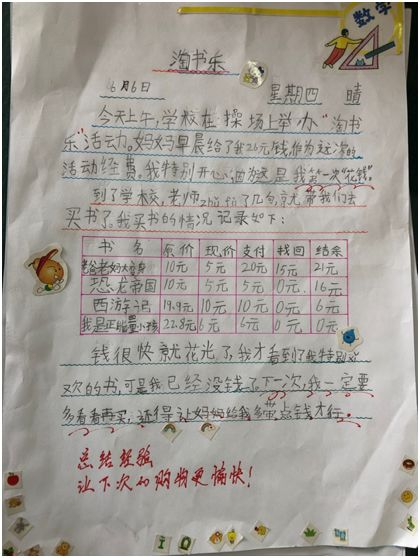 数学
淘书乐
6月6日 星期四 晴
今天上午,学校在操场上举办"淘书
乐"活动。妈妈早晨给了我26元钱,作为这次的
活动经费。我特别开心,因为这是我第一次"花钱"。
到了学校,老师zhǔ fù了几句,就带我们去
买书了。我买书的情况记录如下:
书名 原价 现价 支付 找回 结余
爸爸老妈大变身 10元 5元 20元 15元 21元
恐龙帝国 10元 5元 5元 0元 16元
西游记 19.9元 10元 10元 0元 6元
我是正能量小孩 22.8元 6元 6元 0元 0元
钱很快就花光了,我才看到了我特别喜
欢的书,可是我已经没钱了。下一次,我一定要
多看看再买,还得让妈妈给我多带点钱才行。
总结经验
让下次的购物更愉快!